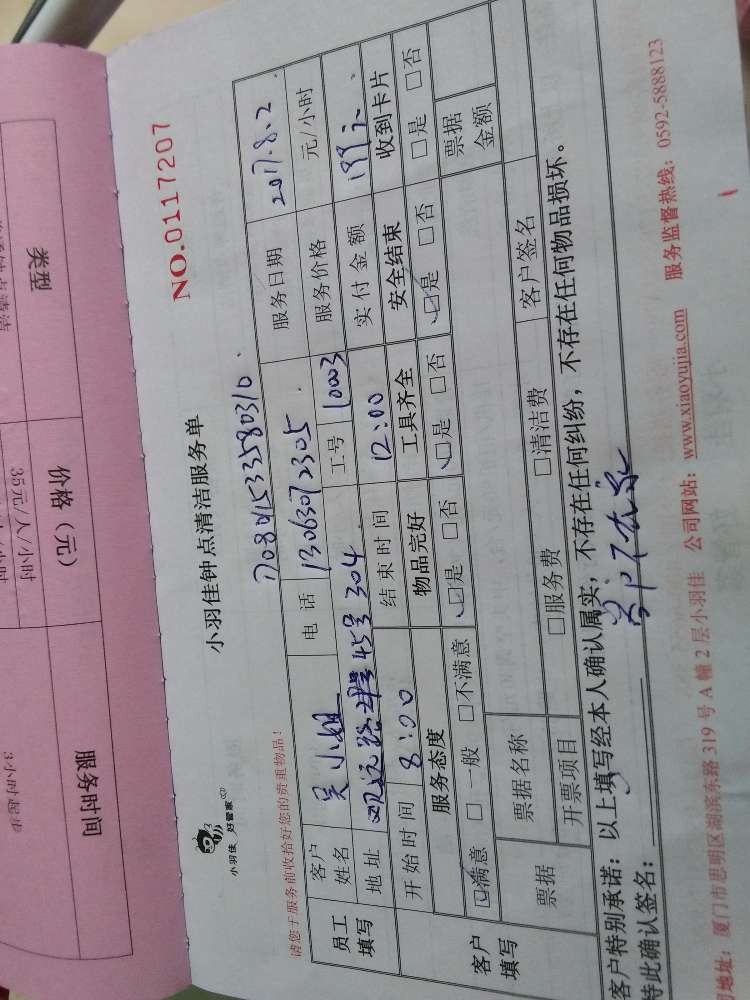 类型
价格（元）
服务时间
35元/人/小时
NO.0117207
小羽佳 好管家
小羽佳钟点清洁服务单
请您于服务前收拾好您的贵重物品！
员工填写
客户姓名 吴小姐 电话 13063072305 服务日期 2017.8.2
地址 45号304 工号 10003 服务价格 元/小时
开始时间 8:00 结束时间 12:00 实付金额 199元
客户填写
服务态度 物品完好 工具齐全 安全结束 收到卡片
☑满意 □一般 □不满意 ☑是 □否 ☑是 □否 ☑是 □否 □是 □否
票据 票据名称 票据金额
开票项目 □服务费 □清洁费 客户签名
客户特别承诺：以上填写经本人确认属实，不存在任何纠纷，不存在任何物品损坏。
特此确认签名：
地址：厦门市思明区湖滨东路319号A幢2层小羽佳 公司网站：www.xiaoyujia.com 服务监督热线：0592-5888123